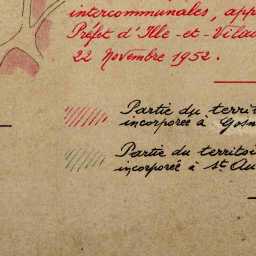 intercommunales, app
Préfet d'Ille-et-Vilai
22 Novembre 1952.
Partie du territ
incorporée à Gosn
Partie du territoi
incorporée à St Au